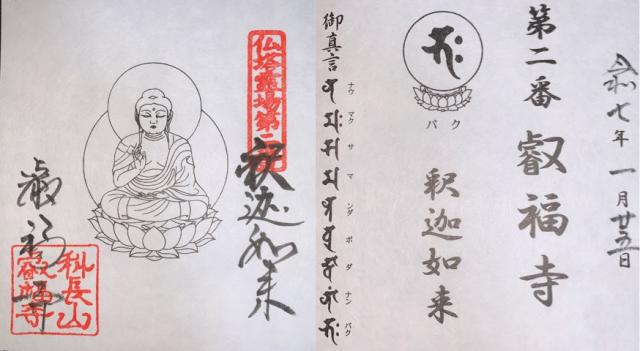 令和七年 一月廿五日
第二番 叡福寺
バク
釈迦如来
御真言
ナウ マク サ マ ンダ ボ ダ ナン バク
仏塔霊場第二番
釈迦如来
叡福寺
科長山
叡福寺